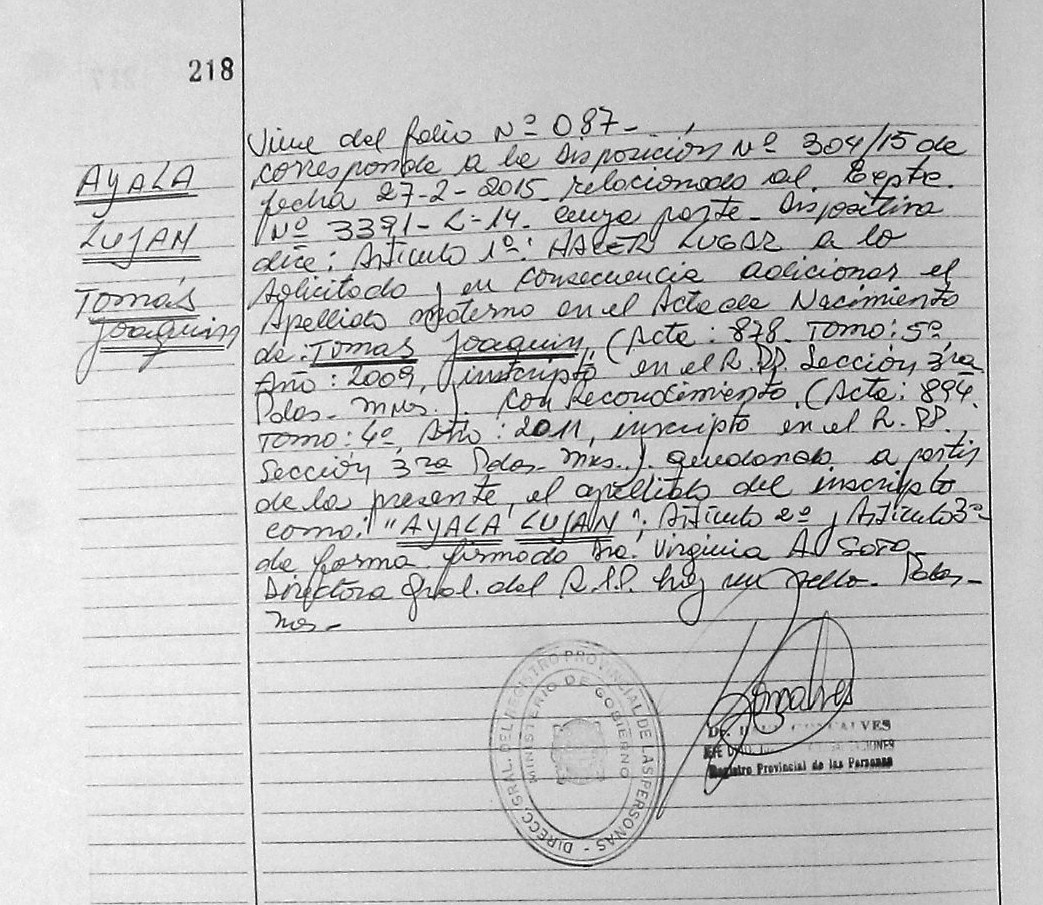 218
AYALA
LUJAN
Tomás
Joaquin
Viene del folio Nº 087-
corresponde a la Disposición Nº 304/15 de
fecha 27-2-2015. relacionado al Expte.
Nº 3391-L-14. cuya parte Dispositiva
dice: Artículo 1º: HACER LUGAR a lo
solicitado y en consecuencia adicionar el
Apellido materno en el Acta de Nacimiento
de: Tomas Joaquin, (Acta: 878 Tomo: 5º,
Año: 2009, inscripto en el R.PP. Sección 3ra
Pdas- Mnes.). con Reconocimiento, (Acta: 894
Tomo: 4º, Año: 2011, inscripto en el R. PP.
Sección 3ra Pdas- Mns.). quedando a partir
de la presente, el apellido del inscripto
como: "AYALA LUJAN"; Artículo 2º y Artículo 3º
de forma. firmado Dra. Virginia A. Soto
Directora Gral. del R.P.P. hay un sello. Pdas-
Mns-
DIRECC. GRAL. DEL REGISTRO PROVINCIAL DE LAS PERSONAS -
MINISTERIO DE GOBIERNO
Gonçalves
GONCALVES
Registro Provincial de las Personas